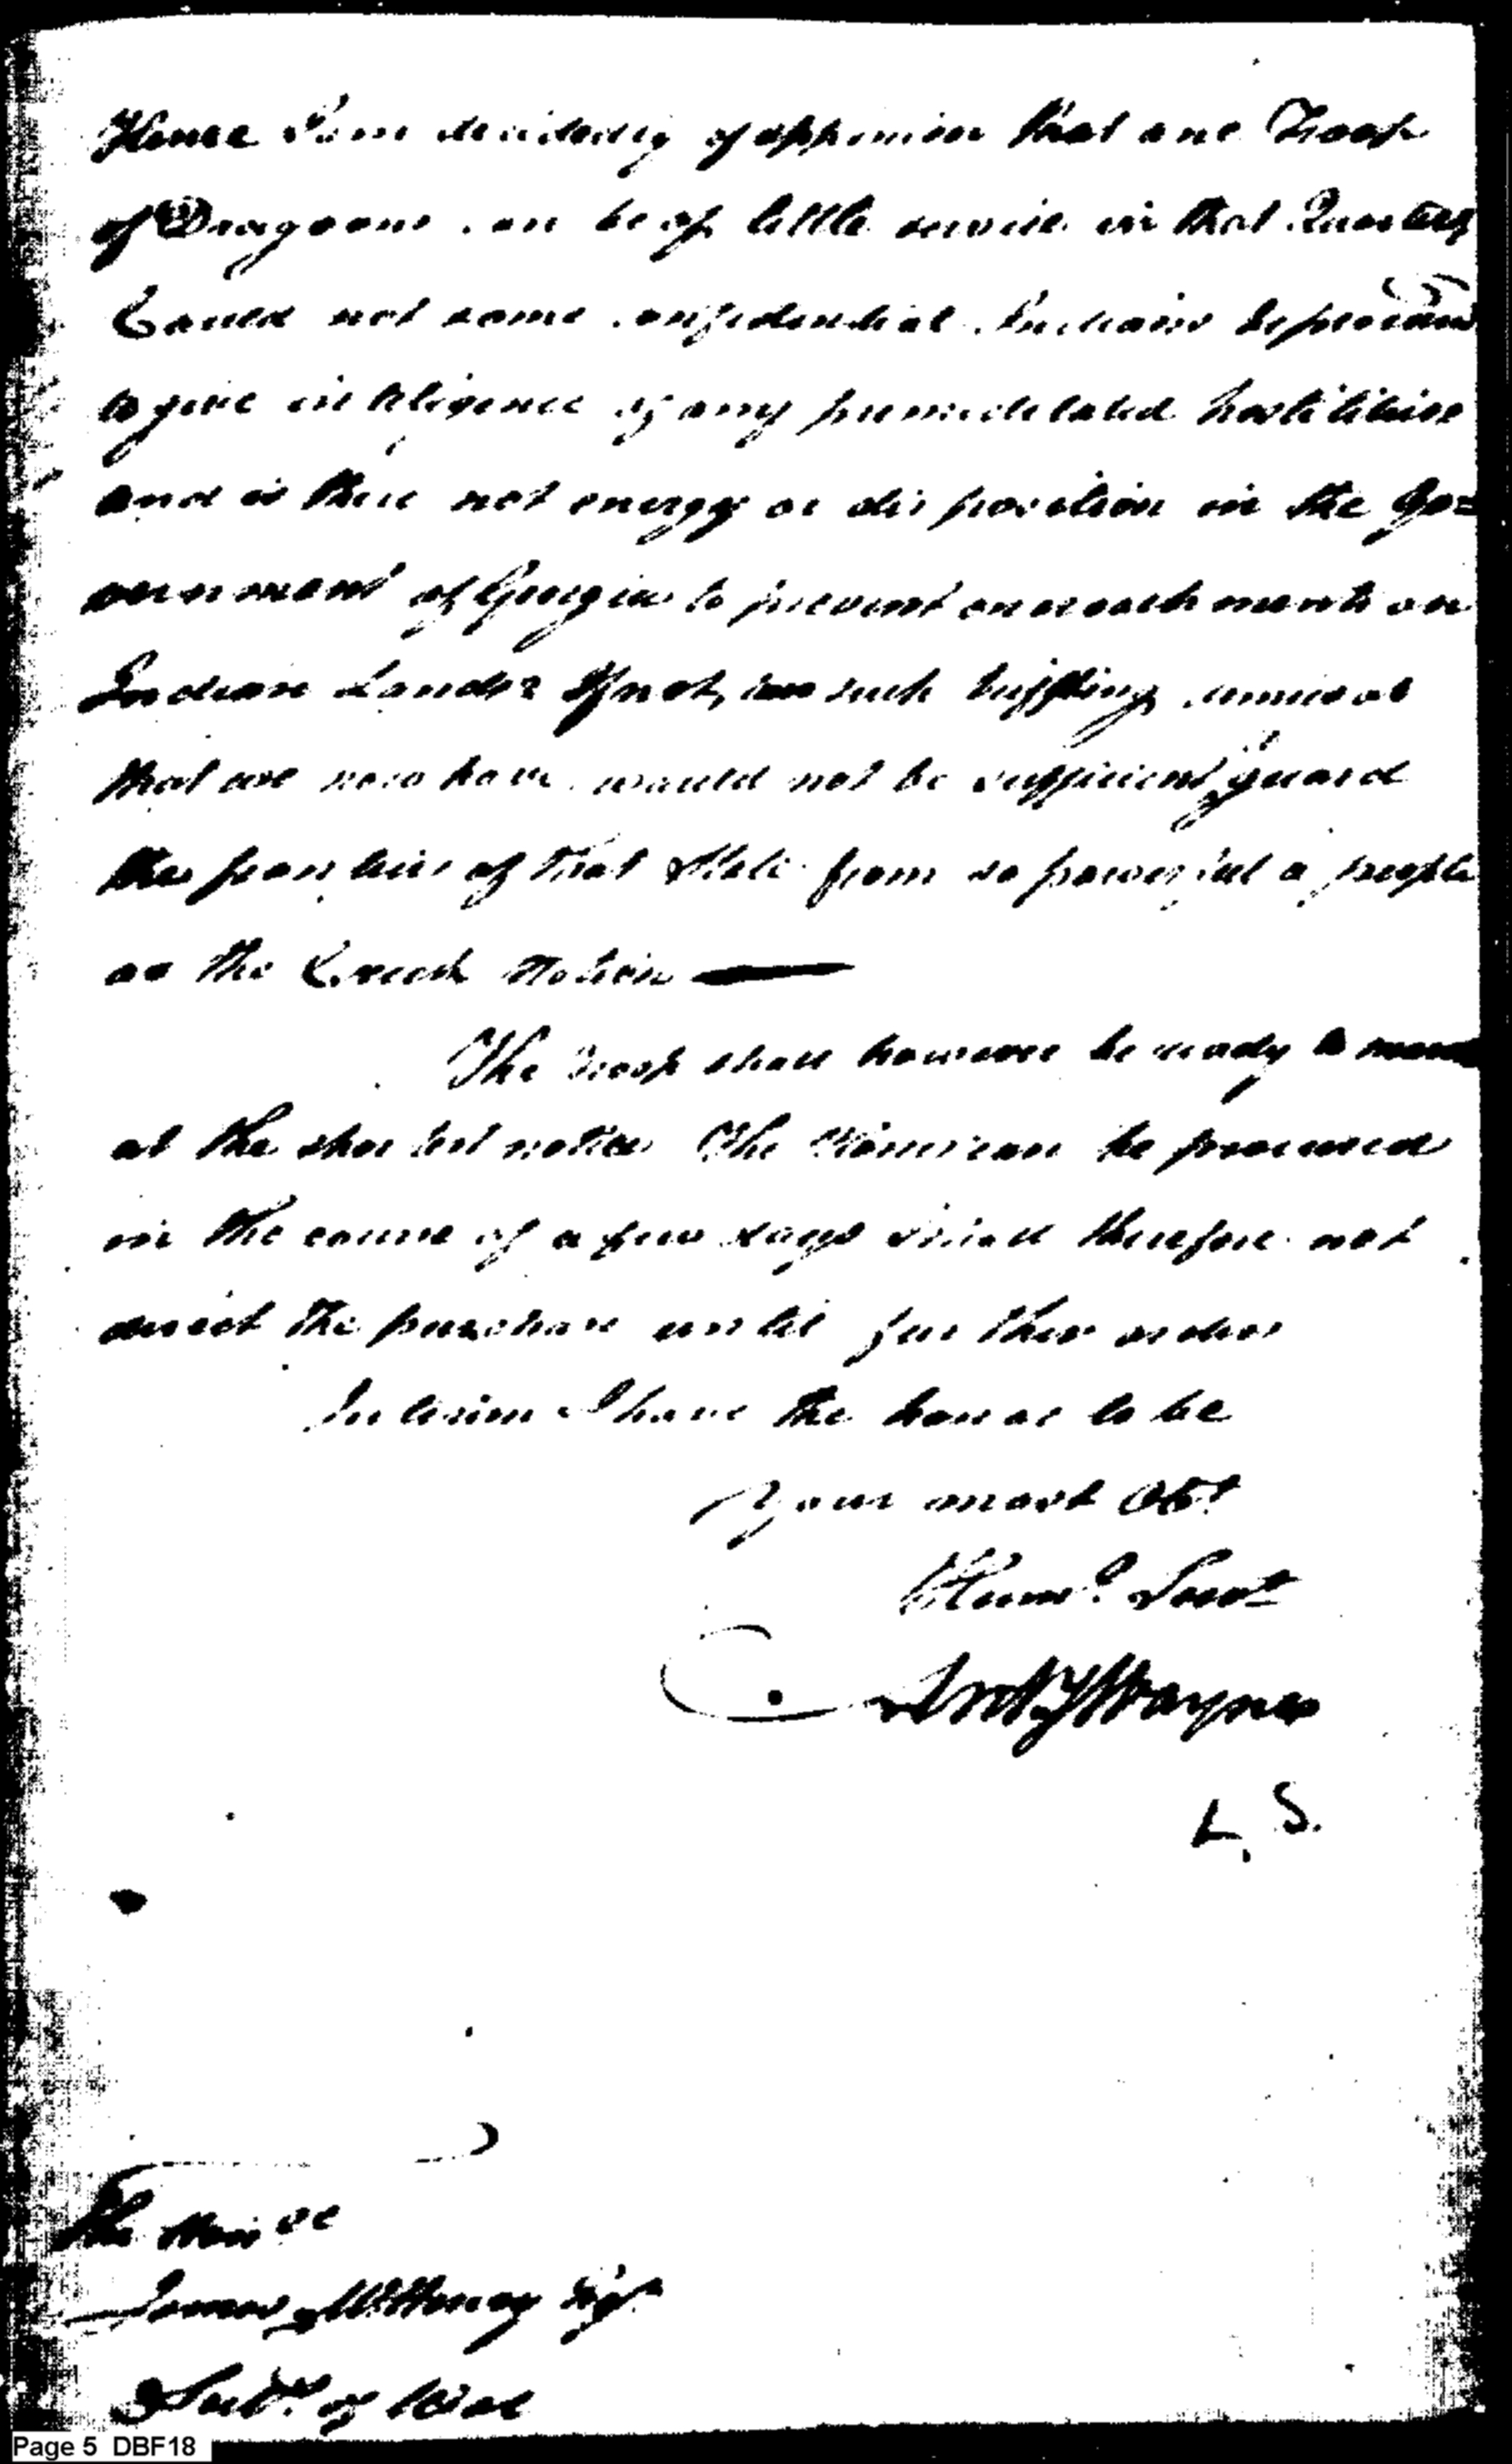 Hence I am decidedly of oppinion that one Troop
of Dragoons can be of little service in that Quarter,
Could not some confidential Indians be procured
to give inteligence of any premeditated hostilities
and is there not energy or disposition in the Go=
vernment of Georgia to prevent encroachments on
Indian Lands? If not, such triffling
that we now have would not be sufficient to guard
the frontiers of that State from so powerful a people
as the Creek Nation
The Troop shall however be ready to
at the shortest notice The can be procured
in the course of a few days I shall therefore not
direct the purchase until further orders
Interim I have the honor to be
Your most Obt
Huml. Servt
Anty Wayne
L. S.
The Honble
James McHenry Esqr
Secty. of War
Page 5 DBF18